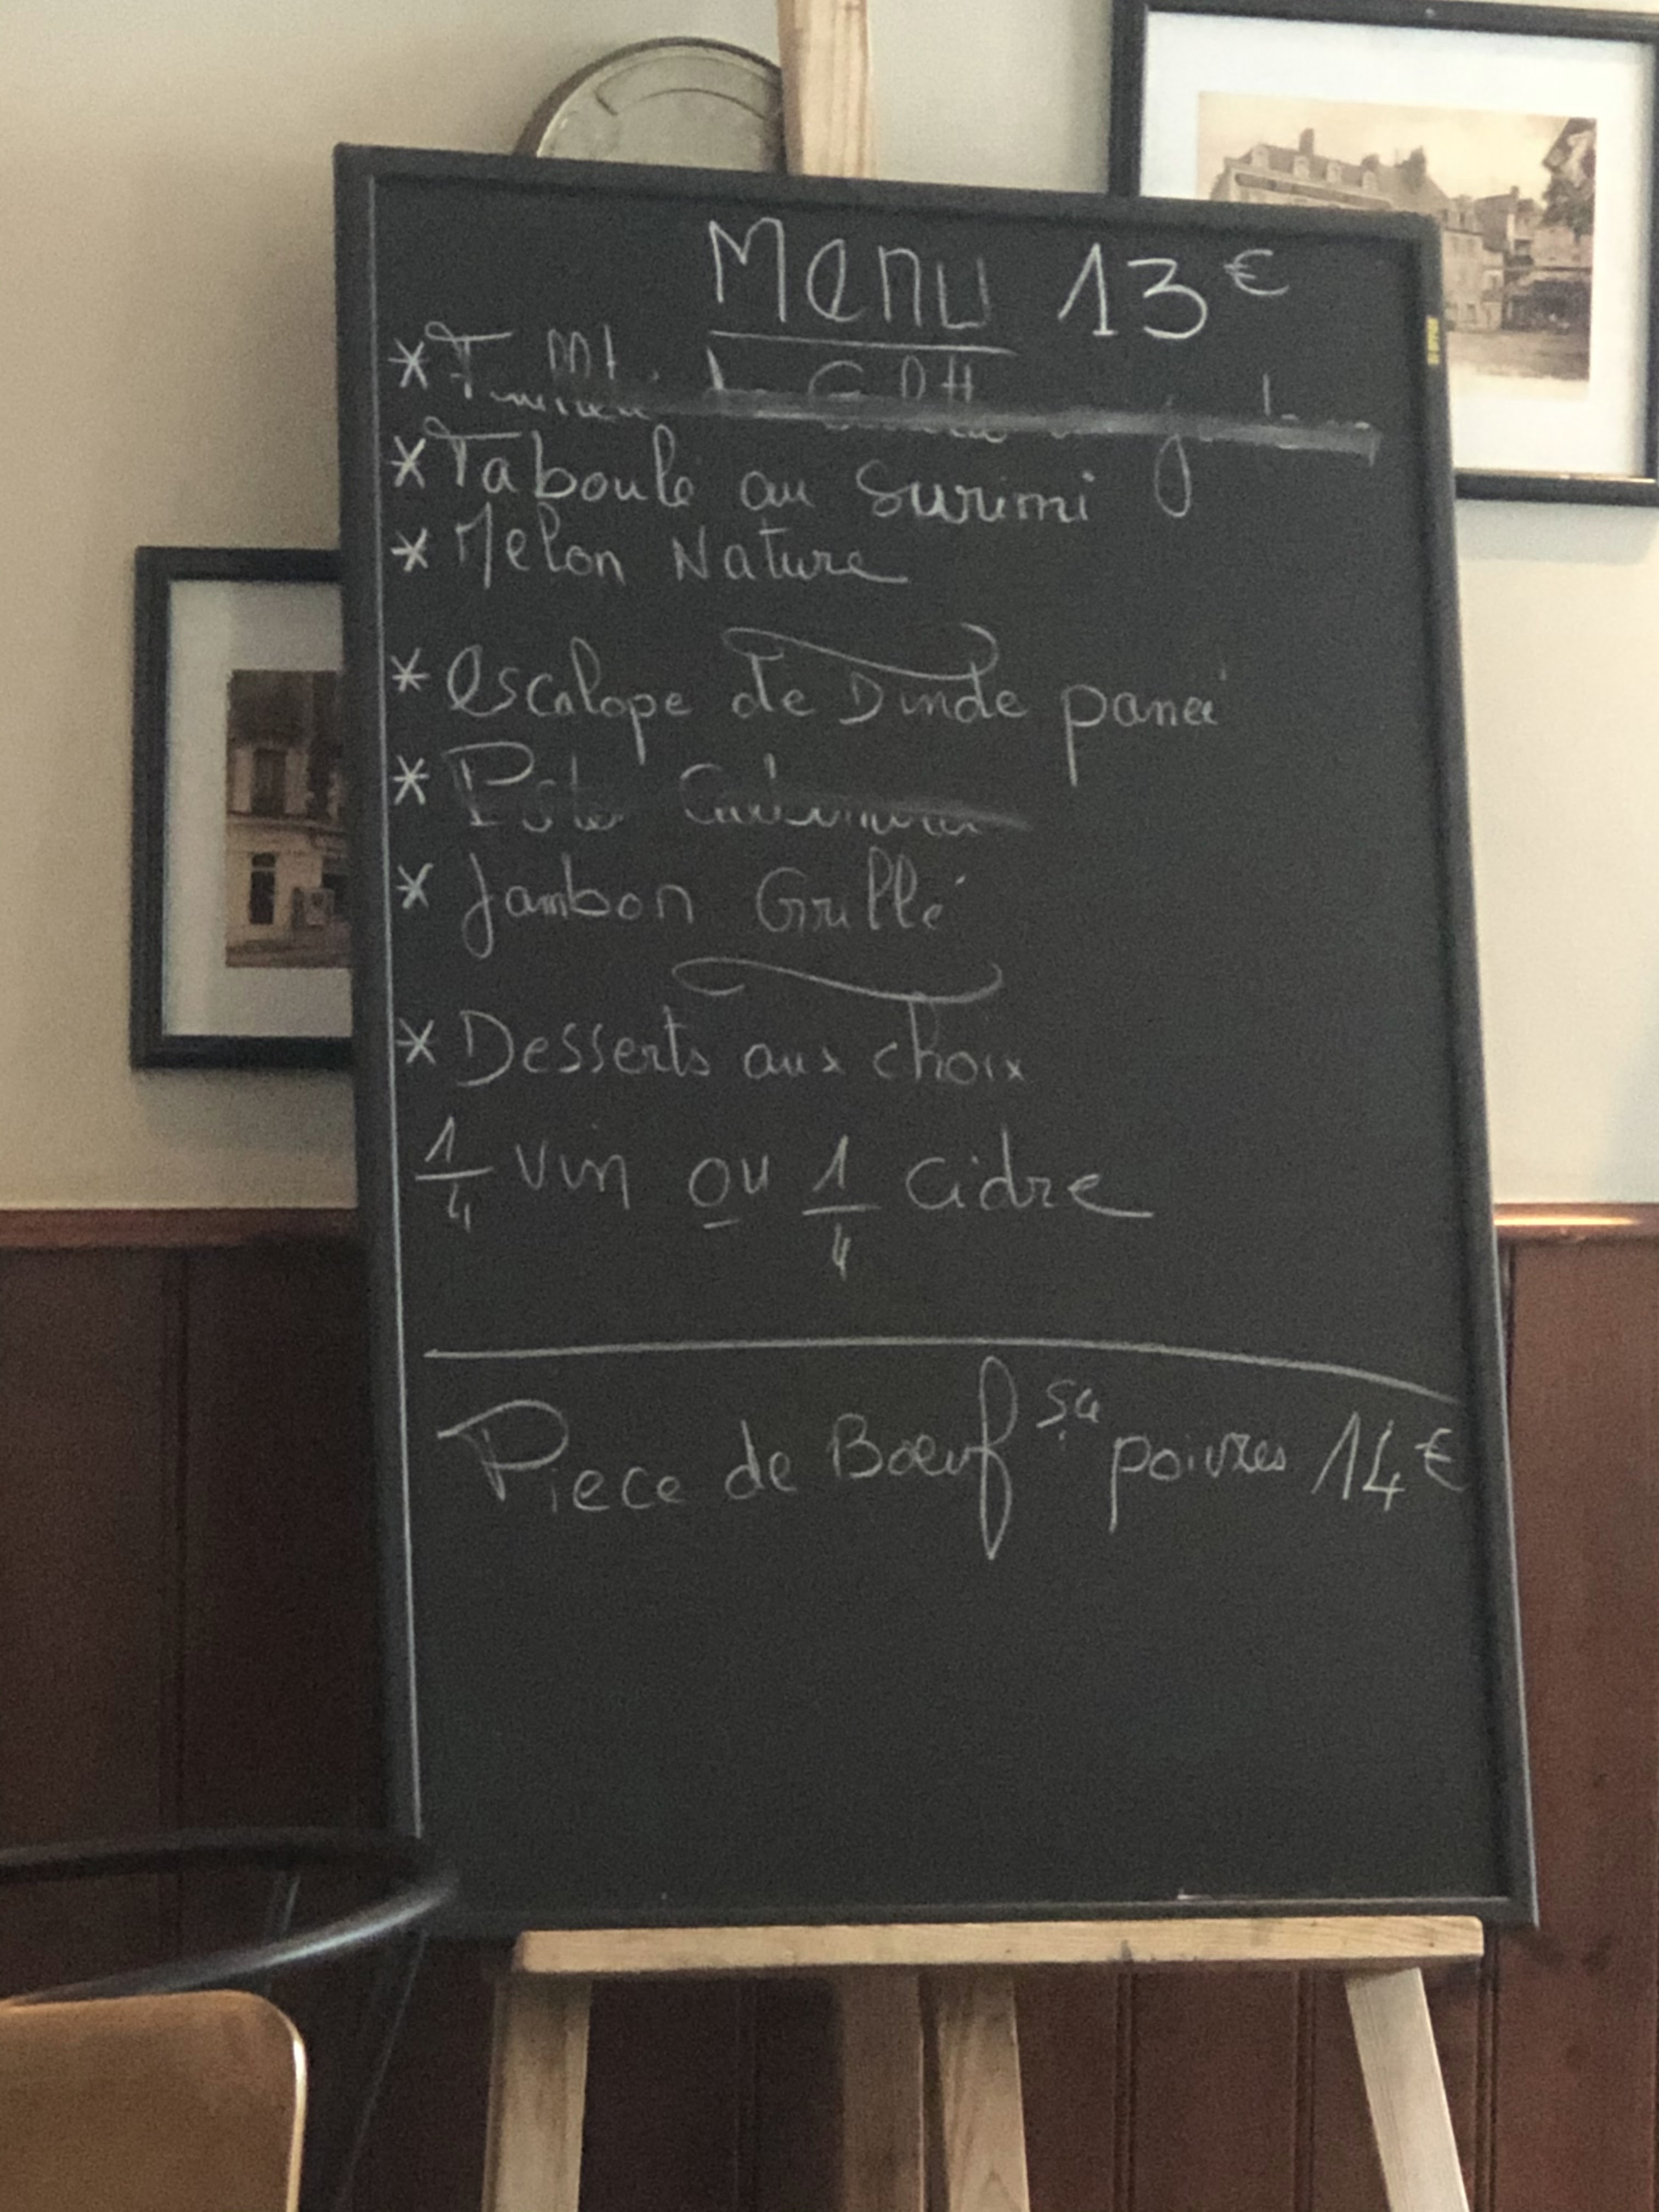 Menu 13€
*
* Taboulé au Surimi
* Melon Nature
* escalope de Dinde panée
*
* Jambon Grillé
* Desserts aux choix
1/4 vin ou 1/4 cidre
Piece de Bœuf sce poivres 14€